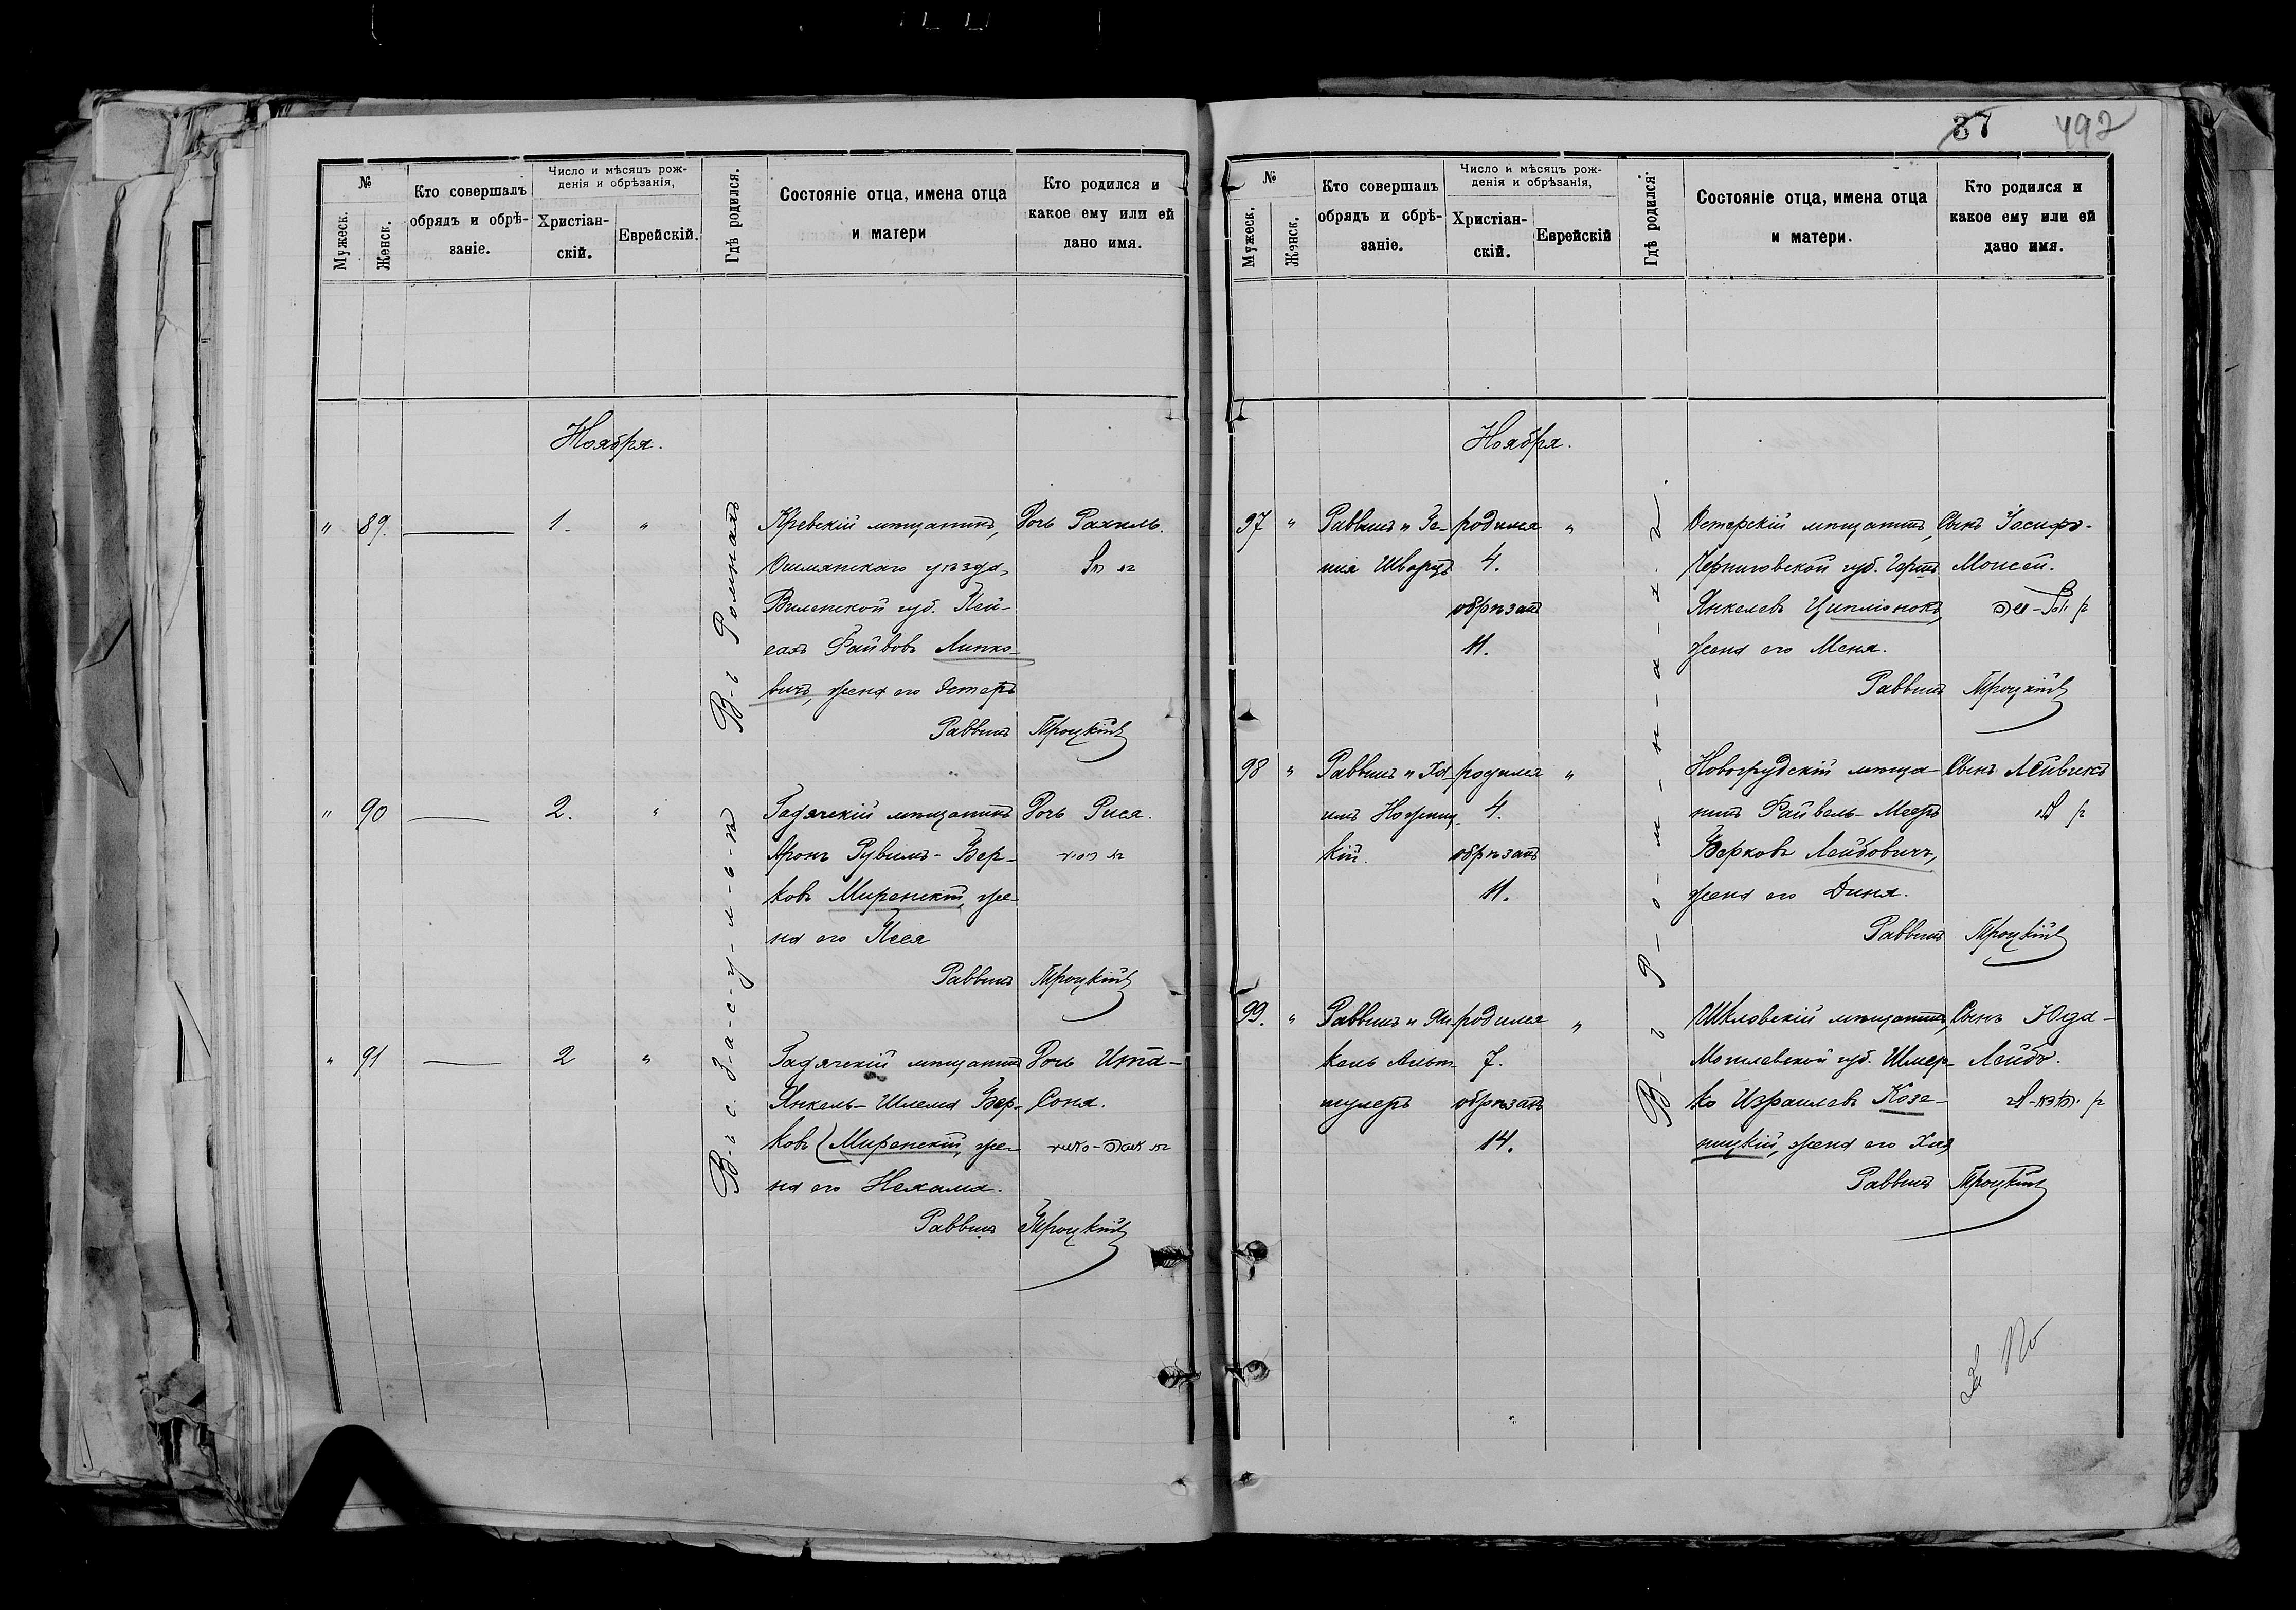 №
Мужеск.
Женск.
Кто совершалъ
обрядъ и обрѣ-
заніе.
Число и мѣсяцъ рож-
денія и обрѣзанія,
Христіан-
скій.
Еврейскій.
Гдѣ родился.
Состояніе отца, имена отца
и матери
Кто родился и
какое ему или ей
дано имя.
Ноября.
" 89. 1. "
Кревскій мѣщанинъ,
Ошмянскаго уѣзда,
Виленской губ. Пей-
сахъ Файвовъ Липко-
вичъ, жена его Эстеръ
Дочь Рахиль.
Раввинъ Троцкій
В-ъ Ромнахъ
" 90 2. "
Гадячскій мѣщанинъ
Аронъ Рувимъ-Бер-
ковъ Миренскій, же-
на его Песя
Дочь Рися.
Раввинъ Троцкій
" 91 2 "
Гадячскій мѣщанинъ
Янкель-Шлема Бер-
ковъ Миренскій, же-
на его Нехама.
Дочь Ита-
Соня.
Раввинъ Троцкій
В-ъ с. З-а-с-у-л-ь-и
37 492
№
Мужеск.
Женск.
Кто совершалъ
обрядъ и обрѣ-
заніе.
Число и мѣсяцъ рож-
денія и обрѣзанія,
Христіан-
скій.
Еврейскій
Гдѣ родился.
Состояніе отца, имена отца
и матери.
Кто родился и
какое ему или ей
дано имя.
Ноября.
97 "
Раввинъ и Зе-
ния Шварцъ
родился
4.
обрѣзанъ
11.
"
Остерскій мѣщанинъ,
Черниговской губ. Гершъ
Янкелевъ Циплёнокъ,
жена его Меня.
Сынъ Іосифъ-
Моисей.
Раввинъ Троцкій
98 "
Раввинъ и Ха
имъ Ножниц-
кій.
родился
4.
обрѣзанъ
11.
"
Новогрудскій мѣща-
нинъ Файвель-Мееръ
Берковъ Лейбовичъ,
жена его Диня.
Сынъ Лейвикъ
Раввинъ Троцкій
99. "
Раввинъ и Ян-
кель Альт-
шулеръ
родился
7.
обрѣзанъ
14.
"
Шкловскій мѣщанинъ,
Могилевской губ. Шмер-
ко Израилевъ Козе-
ницкій, жена его Хая
Сынъ Юда-
Лейбъ.
Раввинъ Троцкій
В-ъ Р-о-м-н-а-х-ъ.